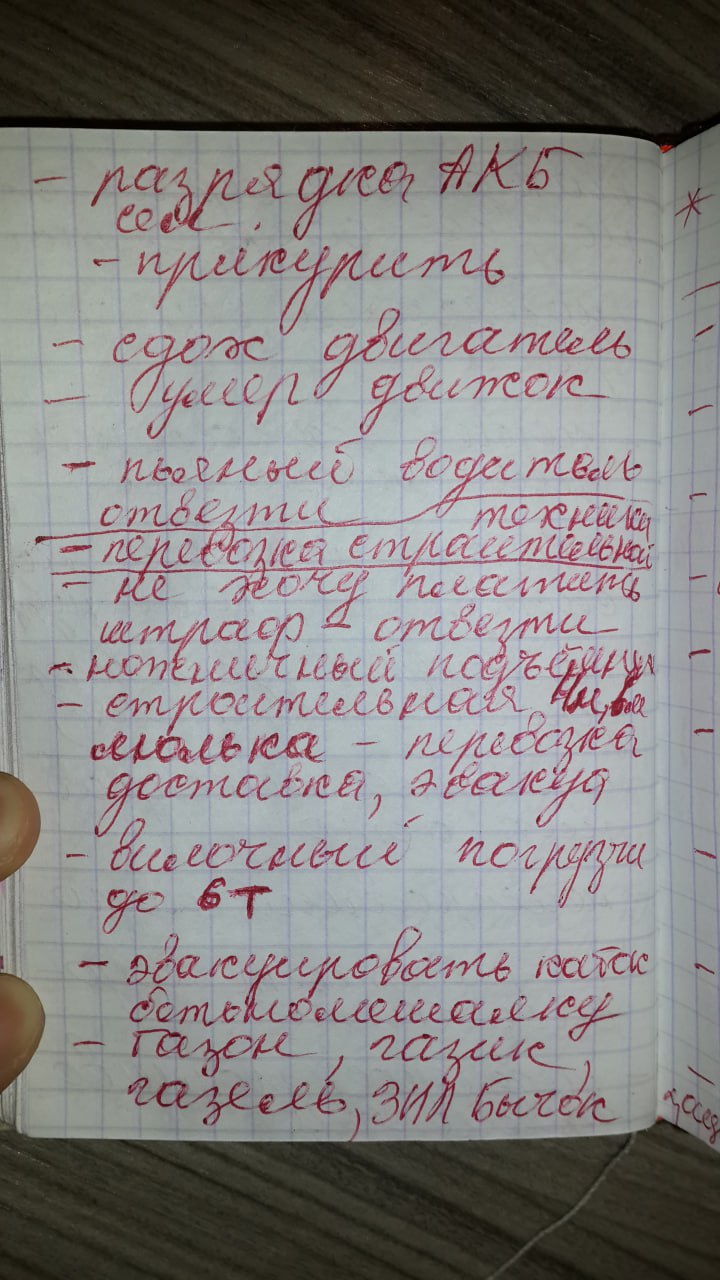 - разрядка АКБ
сел.
- прикурить
- сдох двигатель
- умер движок
- пьяный водитель
отвезти техники
- перевозка строительной
- не хочу платить
штраф - отвезти
- ножничный подъёмник
- строительная 4м,
люлька - перевозка
доставка, эвакуа
- вилочный погрузчи
до 6т
- эвакуировать каток
бетономешалку
- Газон, газик,
газель, ЗИЛ Бычок